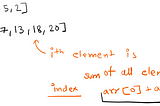 5, 2]
7, 13, 18, 20]
ith element is
sum of all ele
index arr [0] + a